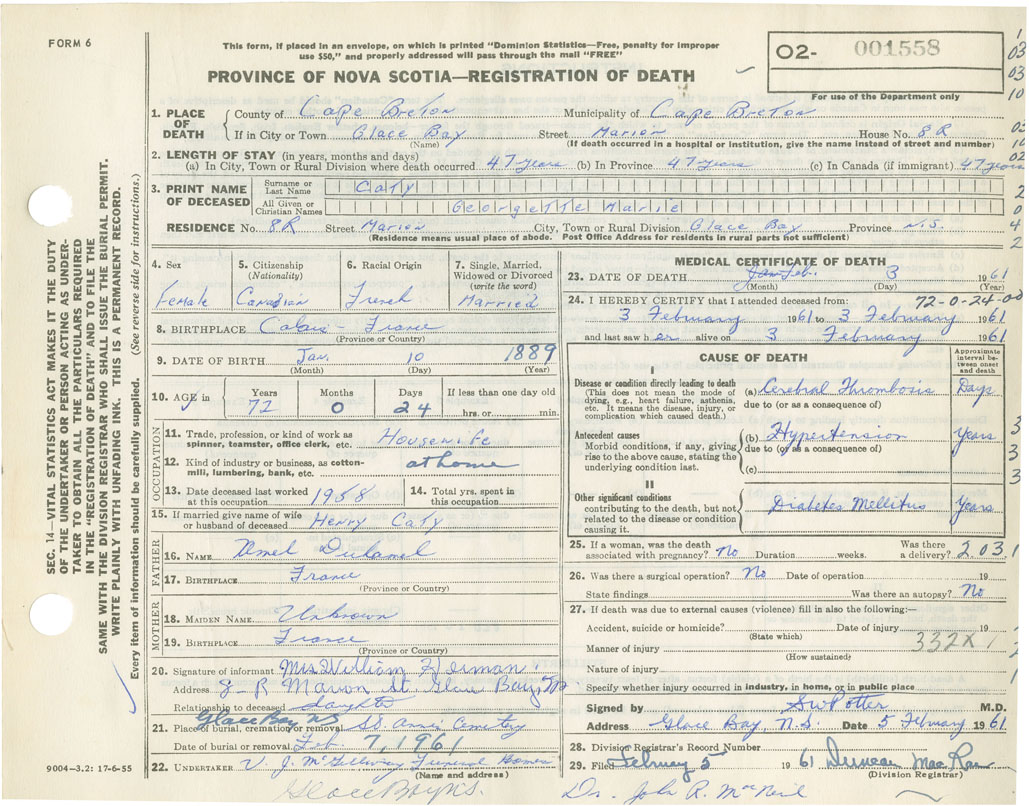 FORM 6
This form, if placed in an envelope, on which is printed "Dominion Statistics—Free, penalty for improper
use $50," and properly addressed will pass through the mail "FREE"
PROVINCE OF NOVA SCOTIA—REGISTRATION OF DEATH
02- 001558
For use of the Department only
1
03
03
10
02
10
02
2
0
4
2
1. PLACE OF DEATH
County of Cape Breton Municipality of Cape Breton
If in City or Town Glace Bay Street Marion House No. 8R
(Name) (If death occurred in a hospital or institution, give the name instead of street and number)
2. LENGTH OF STAY (in years, months and days)
(a) In City, Town or Rural Division where death occurred 47 years (b) In Province 47 years (c) In Canada (if immigrant) 47 years
3. PRINT NAME OF DECEASED
Surname or Last Name Caty
All Given or Christian Names Georgette Marie
RESIDENCE No. 8R Street Marion City, Town or Rural Division Glace Bay Province N.S.
(Residence means usual place of abode. Post Office Address for residents in rural parts not sufficient)
4. Sex
female
5. Citizenship
(Nationality)
Canadian
6. Racial Origin
French
7. Single, Married,
Widowed or Divorced
(write the word)
Married
8. BIRTHPLACE Calais - France
(Province or Country)
9. DATE OF BIRTH Jan. 10 1889
(Month) (Day) (Year)
10. AGE in
Years
72
Months
0
Days
24
If less than one day old
hrs. or min.
OCCUPATION
11. Trade, profession, or kind of work as
spinner, teamster, office clerk, etc. Housewife
12. Kind of industry or business, as cotton-
mill, lumbering, bank, etc. at home
13. Date deceased last worked
at this occupation 1958
14. Total yrs. spent in
this occupation
15. If married give name of wife
or husband of deceased Henry Caty
FATHER
16. NAME
17. BIRTHPLACE France
(Province or Country)
MOTHER
18. MAIDEN NAME Unknown
19. BIRTHPLACE France
(Province or Country)
20. Signature of informant Mrs. William
Address 8-R Marion St. Glace Bay,
Relationship to deceased daughter
Glace Bay NS
21. Place of burial, cremation or removal St. Anne's Cemetery
Date of burial or removal Feb. 7, 1961
22. UNDERTAKER V. J. McGillivray Funeral Homes
(Name and address)
Glace Bay NS.
MEDICAL CERTIFICATE OF DEATH
23. DATE OF DEATH Jan Feb. 3 1961
(Month) (Day) (Year)
24. I HEREBY CERTIFY that I attended deceased from: 72-0-24-00
3 February 1961 to 3 February 1961
and last saw h er alive on 3 February 1961
CAUSE OF DEATH
Approximate
interval be-
tween onset
and death
I
Disease or condition directly leading to death
(This does not mean the mode of
dying, e.g., heart failure, asthenia,
etc. It means the disease, injury, or
complication which caused death.)
(a) Cerebral Thrombosis Days
due to (or as a consequence of)
Antecedent causes
Morbid conditions, if any, giving
rise to the above cause, stating the
underlying condition last.
(b) Hypertension Years
due to (or as a consequence of)
(c)
3
3
3
II
Other significant conditions
contributing to the death, but not
related to the disease or condition
causing it.
Diabetes Mellitus Years
25. If a woman, was the death
associated with pregnancy? No Duration weeks. Was there
a delivery? 2 03 1
26. Was there a surgical operation? No Date of operation 19
State findings Was there an autopsy? No
27. If death was due to external causes (violence) fill in also the following:—
Accident, suicide or homicide? Date of injury 19
(State which)
Manner of injury 332X
(How sustained)
Nature of injury
Specify whether injury occurred in industry, in home, or in public place
Signed by SW Potter M.D.
Address Glace Bay, N.S. Date 5 February 1961
28. Division Registrar's Record Number
29. Filed February 5 1961 Duncan MacRae
(Division Registrar)
Dr. John R. McNeil
SEC. 14—VITAL STATISTICS ACT MAKES IT THE DUTY
OF THE UNDERTAKER OR PERSON ACTING AS UNDER-
TAKER TO OBTAIN ALL THE PARTICULARS REQUIRED
IN THE "REGISTRATION OF DEATH" AND TO FILE THE
SAME WITH THE DIVISION REGISTRAR WHO SHALL ISSUE THE BURIAL PERMIT.
WRITE PLAINLY WITH UNFADING INK. THIS IS A PERMANENT RECORD.
Every item of information should be carefully supplied. (See reverse side for instructions.)
9004—3.2: 17-6-55